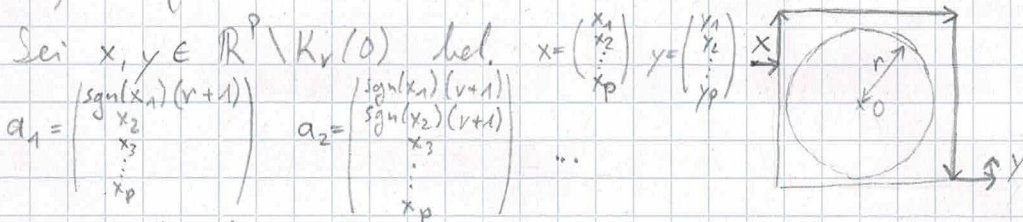 Sei x, y ∈ ℝᵖ \ Kᵣ(0) bel. x = (x₁ x₂ ⋮ xₚ) y = (y₁ y₂ ⋮ yₚ)
a₁ = (sgn(x₁)(r+1) x₂ x₃ ⋮ xₚ) a₂ = (sgn(x₁)(r+1) sgn(x₂)(r+1) x₃ ⋮ xₚ) ...
x r 0 y